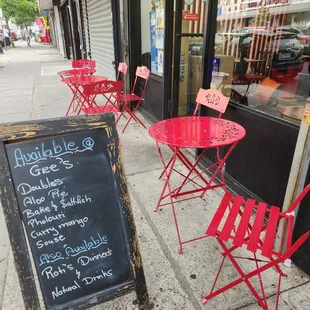 Available @
Gee's
Doubles
Aloo Pie
Bake & Saltfish
Pholouri
Curry mango
Souse
Also Available
Roti's Dinners
&
Natural Drinks